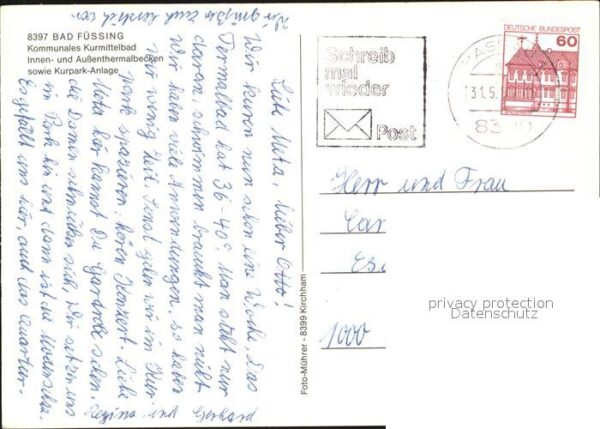 8397 BAD FÜSSING
Kommunales Kurmittelbad
Innen- und Außenthermalbecken
sowie Kurpark-Anlage
Liebe Meta, lieber Otto!
Wir kuren nun schon eine Woche, das
Termalbad hat 36-40°, Man steht nur
daran, schwimmen braucht man nicht
Wir haben viele Anwendungen, so haben
wir wenig Zeit. Sonst gehen wir im Kur-
park spazieren, hören Konzert. Liebe
Meta hier kannst Du Garderobe sehen,
die Damen schmücken sich, Wir setzen uns
im Park hin und dann ist die Modenschau.
Es gefällt uns hier, auch das Quartier.
Wir grüßen Euch herzlich von
und Gerhard
Foto-Mührer - 8399 Kirchham
Schreib
mal
wieder
Post
DEUTSCHE BUNDESPOST
60
PASS
31.5.
83
Herr und Frau
Car
1000
privacy protection
Datenschutz